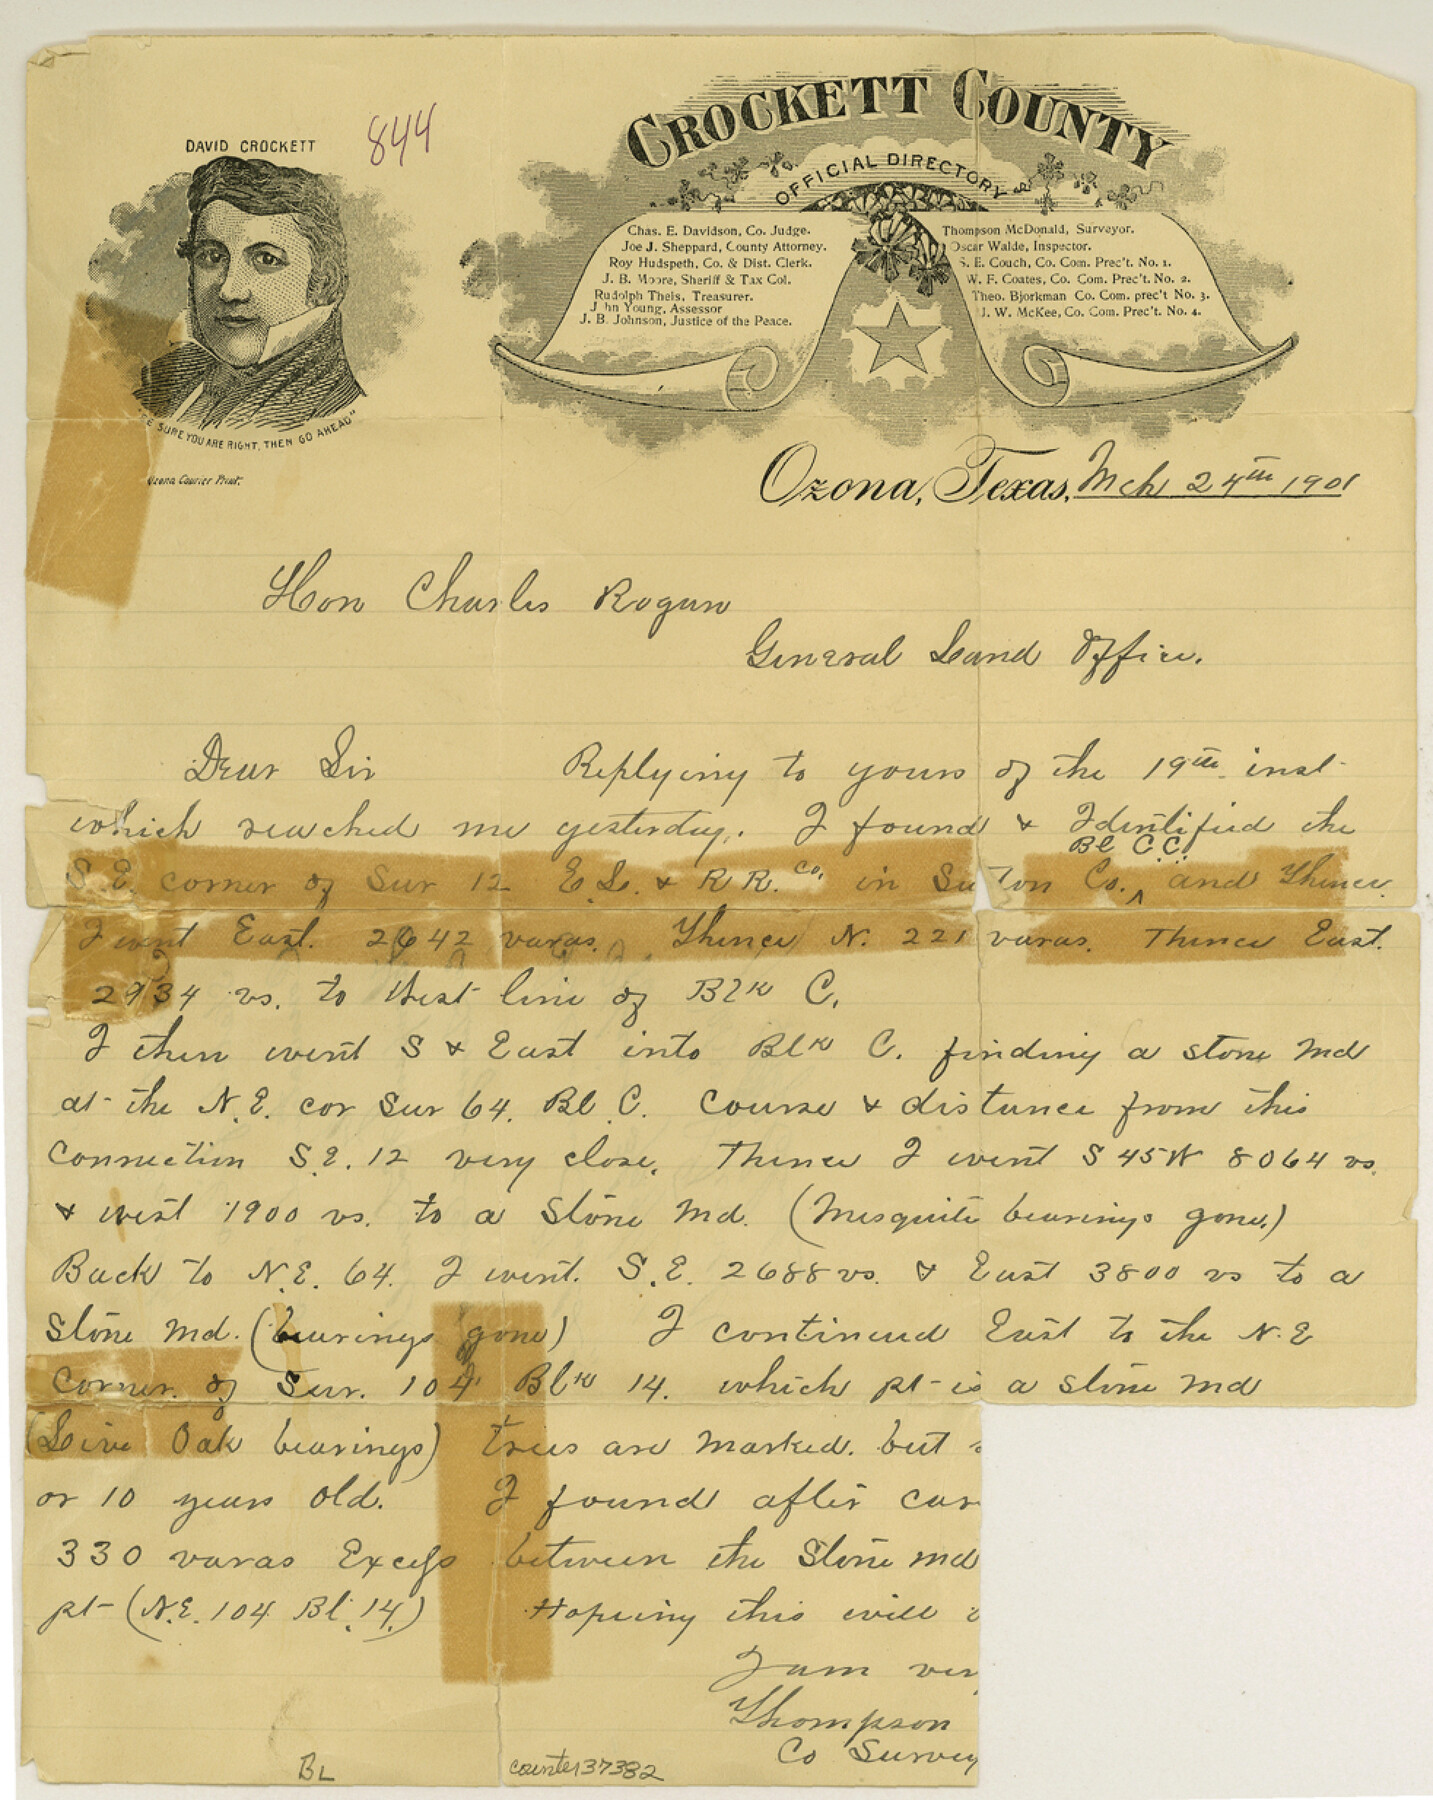 844
DAVID CROCKETT
"BE SURE YOU ARE RIGHT, THEN GO AHEAD"
Ozona Courier Print.
CROCKETT COUNTY
OFFICIAL DIRECTORY
Chas. E. Davidson, Co. Judge.
Joe J. Sheppard, County Attorney.
Roy Hudspeth, Co. & Dist. Clerk.
J. B. Moore, Sheriff & Tax Col.
Rudolph Theis, Treasurer.
J hn Young, Assessor
J. B. Johnson, Justice of the Peace.
Thompson McDonald, Surveyor.
Oscar Walde, Inspector.
S. E. Couch, Co. Com. Prec't. No. 1.
W. F. Coates, Co. Com. Prec't. No. 2.
Theo. Bjorkman Co. Com. prec't No. 3.
J. W. McKee, Co. Com. Prec't. No. 4.
Ozona, Texas, Mch 24th 1901
Hon Charles Rogan
General Land Office.
Dear Sir Replying to yours of the 19th inst
which reached me yesterday. I found & Identified the
S.E. corner of Sur 12 E L. & R R. Co. in Sutton Co. Bl C.C. and Thence
I went East. 2642 varas. Thence N. 221 varas. Thence East.
2934 vs. to West line of Blk C.
I then went S & East into Blk C. finding a stone Md
at the N.E. cor Sur 64. Bl C. Course & distance from this
Connection S.E. 12 very close. Thence I went S 45 W 8064 vs.
& west 1900 vs. to a Stone Md. (Mesquite bearings gone.)
Back to N.E. 64. I went. S.E. 2688 vs. & East 3800 vs to a
Stone Md. (bearings gone) I continued East to the N.E
Corner. of Sur. 104 Blk 14. which pt is a stone Md
(Live Oak bearings) trees are marked. but
or 10 years old. I found after car
330 varas Excess between the Stone Md
pt (N.E. 104 Bl. 14.) Hopeing this will
I am ver
Thompson
Co Survey
BL
counter 37382